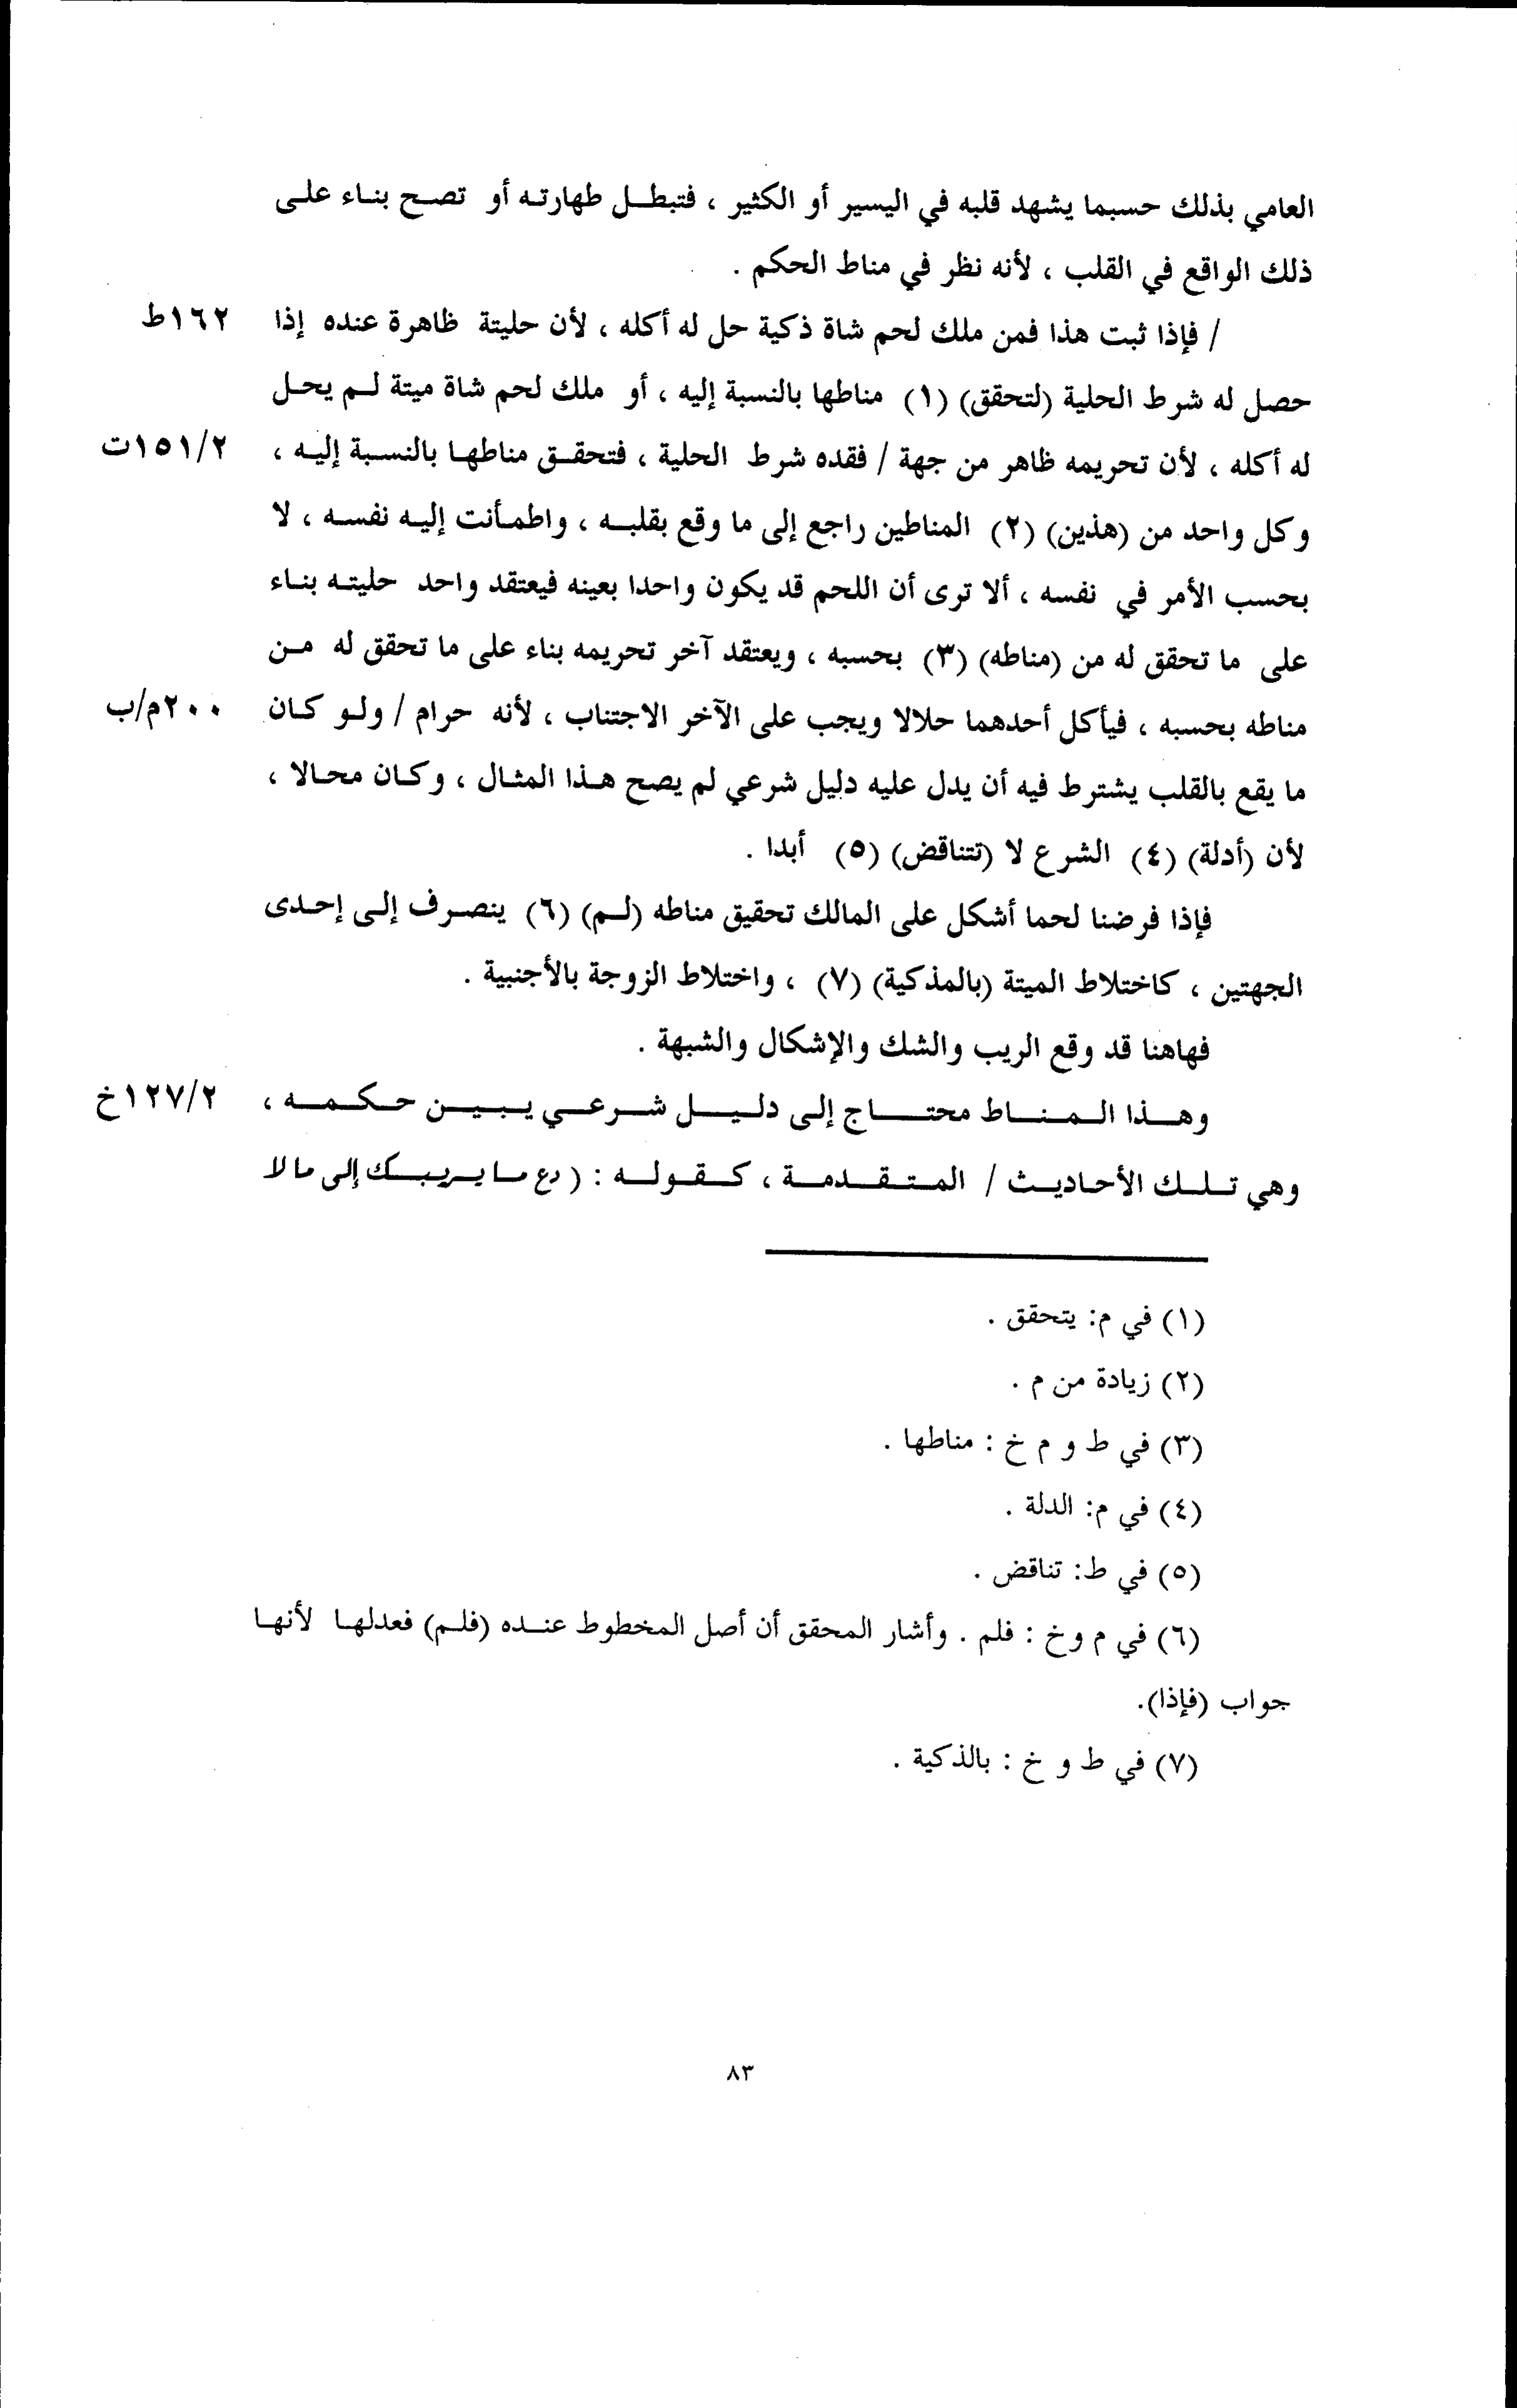 العامي بذلك حسبما يشهد قلبه في اليسير أو الكثير ، فتبطل طهارته أو تصح بناء على
ذلك الواقع في القلب ، لأنه نظر في مناط الحكم .
/ فإذا ثبت هذا فمن ملك لحم شاة ذكية حل له أكله ، لأن حليتة ظاهرة عنده إذا ١٦٢ط
حصل له شرط الحلية (لتحقق) (١) مناطها بالنسبة إليه ، أو ملك لحم شاة ميتة لم يحل
له أكله ، لأن تحريمه ظاهر من جهة / فقده شرط الحلية ، فتحقق مناطها بالنسبة إليه ، ١٥١/٢ت
وكل واحد من (هذين) (٢) المناطين راجع إلى ما وقع بقلبه ، واطمأنت إليه نفسه ، لا
بحسب الأمر في نفسه ، ألا ترى أن اللحم قد يكون واحدا بعينه فيعتقد واحد حليته بناء
على ما تحقق له من (مناطه) (٣) بحسبه ، ويعتقد آخر تحريمه بناء على ما تحقق له من
مناطه بحسبه ، فيأكل أحدهما حلالا ويجب على الآخر الاجتناب ، لأنه حرام / ولو كان ٢٠٠م/ب
ما يقع بالقلب يشترط فيه أن يدل عليه دليل شرعي لم يصح هذا المثال ، وكان محالا ،
لأن (أدلة) (٤) الشرع لا (تتناقض) (٥) أبدا .
فإذا فرضنا لحما أشكل على المالك تحقيق مناطه (لم) (٦) ينصرف إلى إحدى
الجهتين ، كاختلاط الميتة (بالمذكية) (٧) ، واختلاط الزوجة بالأجنبية .
فهاهنا قد وقع الريب والشك والإشكال والشبهة .
وهذا المناط محتاج إلى دليل شرعي يبين حكمه ، ١٢٧/٢خ
وهي تلك الأحاديث / المتقدمة ، كقوله : (دع ما يريبك إلى ما لا
(١) في م: يتحقق .
(٢) زيادة من م .
(٣) في ط و م خ : مناطها .
(٤) في م: الدلة .
(٥) في ط: تناقض .
(٦) في م وخ : فلم . وأشار المحقق أن أصل المخطوط عنده (فلم) فعدلها لأنها
جواب (فإذا).
(٧) في ط و خ : بالذكية .
٨٣